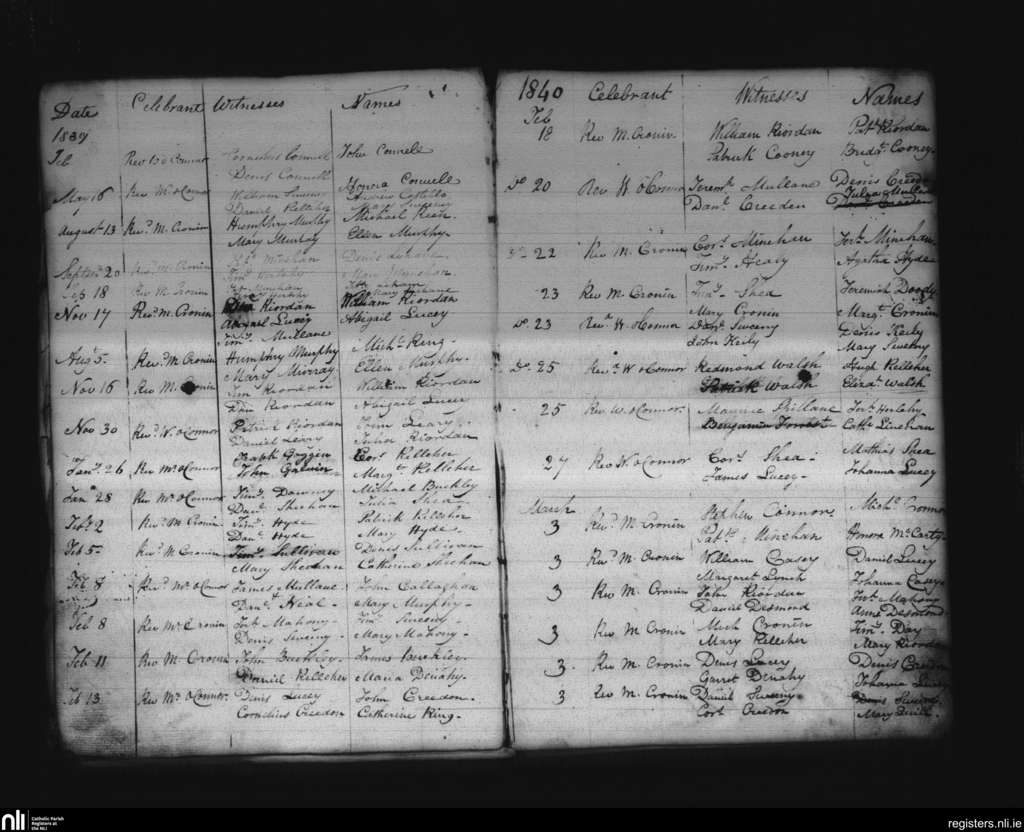 Date Celebrant Witnesses Names
1839
Feb Revd Cornelius Connell John Connell
Denis Connell Honora Connell
May 16 Rev Mr O'Connor William Andrew Costello
Daniel Kelleher Mary Sweeny
August 13 Revd M. Cronin Humphry Murphy Michael Keen.
Mary Murphy Ellen Murphy.
Septr 20 Revd M. Cronin Meehan Denis
Timy Mary
Sep 18 Rev M. Cronin Pat Meehan
Nov 17 Revd M. Cronin Riordan William Riordan
Abigail Lucey Abigail Lucey
Augt 5. Revd M. Cronin Timy Mullane Michl Ring.
Humphry Murphy Ellen Murphy.
Mary Murray
Nov 16 Rev M. Cronin Tim Riordan William Riordan
Dan Riordan Abigail Lucey
Nov 30 Revd W. O'Connor Patrick Riordan John Leary.
Daniel Leary Julia Riordan
Jany 26 Rev Mr O'Connor Ralph Goggin Cors Kelleher
John Galwin Margt Kelleher
Jany 28 Rev Mr O'Connor Timy Downey Michael Buckley
Danl Sheehan Julia Shea
Feby 2 Revd M Cronin Timy Hyde Patrick Kelleher
Danl Hyde Mary Hyde.
Feb 5. Revd M Cronin Timy Sullivan Denis Sullivan
Mary Sheehan Catherine Sheehan
Feb 8 Rev Mr O'Connor James Mullane John Callaghan
Danl Neal Mary Murphy.
Feb 8 Rev M. Cronin Jert Mahony. Timy Sweeny.
Denis Sweeny. Mary Mahony.
Feb 11 Rev M. Cronin John Buckley. James Buckley.
Daniel Kelleher Maria Denahy.
Feb 13 Rev Mr O'Connor. Denis Lucey John Creedon.
Cornelius Creedon Catherine Ring.
1840 Celebrant Witnesses Names
Feb
18 Rev M. Cronin William Riordan Patk Riordan
Patrick Cooney Bridgt Cooney.
Do 20 Rev W O'Connor Jeremh Mullane Denis Creedon
Danl Creeden Julia Mullane
Do 22 Rev M. Cronin Cors Minehan Jert Minehan
Timy Healy Agatha Hyde
23 Rev M. Cronin Timy Shea Jeremiah Doody
Mary Cronin Margt Cronin
Do 23 Revd W. O'Connor Danl Sweeny Denis Keily
John Keily Mary Sweeny
Do 25 Revd W O'Connor Redmond Walsh Hugh Kelleher
Patrick Walsh Elizath Walsh
25 Rev W. O'Connor. Maurice Shillane
Benjamin Forrest Cathe Linehan
27 Rev W. O'Connor Cors Shea. Mathias Shea
James Lucey. Johanna Lucey
March
3 Revd M. Cronin Stephen Connor. Michl Connor
Patk Minehan Honora McCarty
3 Revd M. Cronin William Casey Daniel Lucey
Margaret Lynch Johanna Casey
3 Rev M. Cronin John Riordan Jert Mahony
Daniel Desmond Anne Desmond
3 Rev M. Cronin Mich Cronin Timy Day
Mary Kelleher Mary Riordan
3. Rev M. Cronin Denis Lucey Denis
Garret Denahy Johanna Lucey
3 Rev M. Cronin Daniel Sweeny. Denis Sweeny
Cors Creedon Mary Quirk.
nli Catholic Parish
Registers at
the NLI
registers.nli.ie